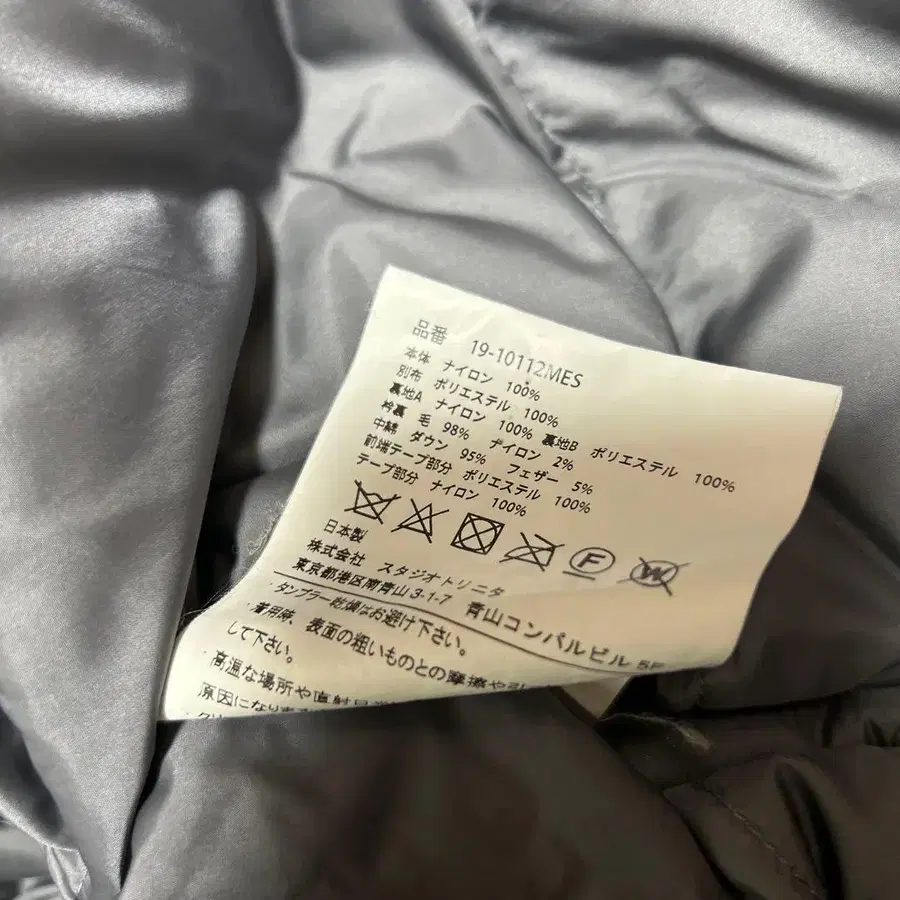 品番 19-10112MES
本体 ナイロン 100%
別布 ポリエステル 100%
裏地A ナイロン 100% 裏地B ポリエステル 100%
衿裏 毛 98% ナイロン 2%
中綿 ダウン 95% フェザー 5%
前端テープ部分 ポリエステル 100%
テープ部分 ナイロン 100%
F W
日本製
株式会社 スタジオトリニタ
東京都港区南青山3-1-7 青山コンパルビル 5F
・タンブラー乾燥はお避け下さい。
・着用時、表面の粗いものとの摩擦や引
して下さい。
・高温な場所や直射日
原因になりま